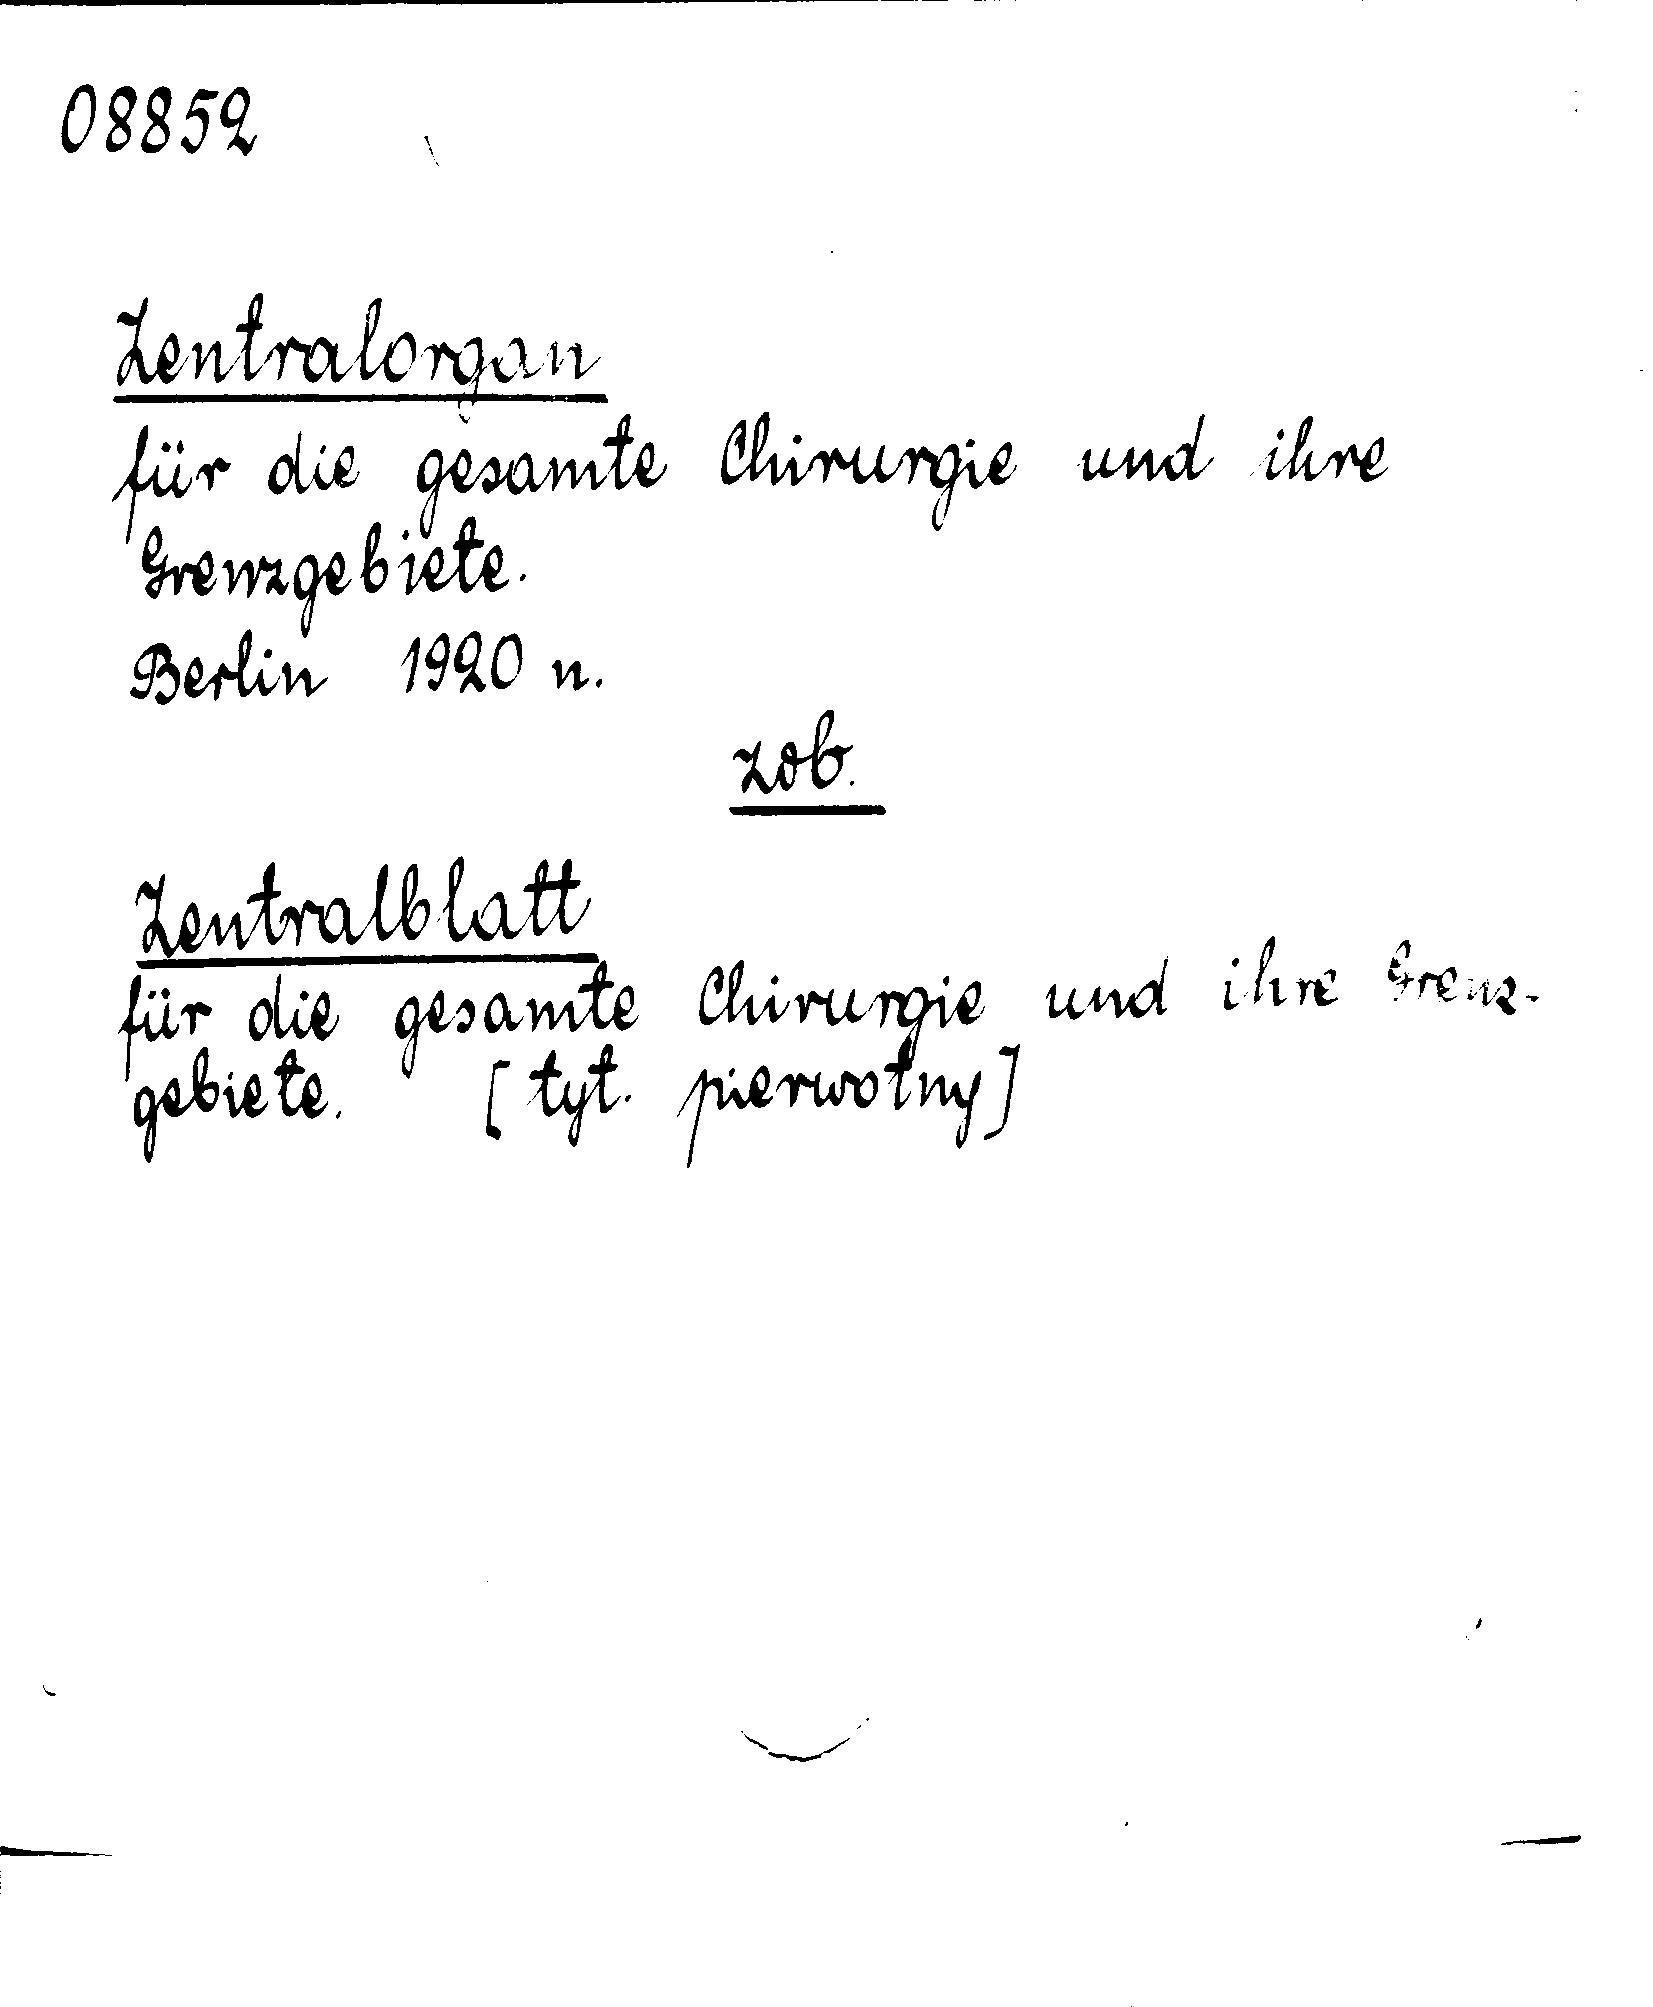 08852
Zentralorgan
für die gesamte Chirurgie und ihre
Grenzgebiete.
Berlin 1920 n.
zob.
Zentralblatt
für die gesamte Chirurgie und ihre Grenz-
gebiete. [tyt. pierwotny]